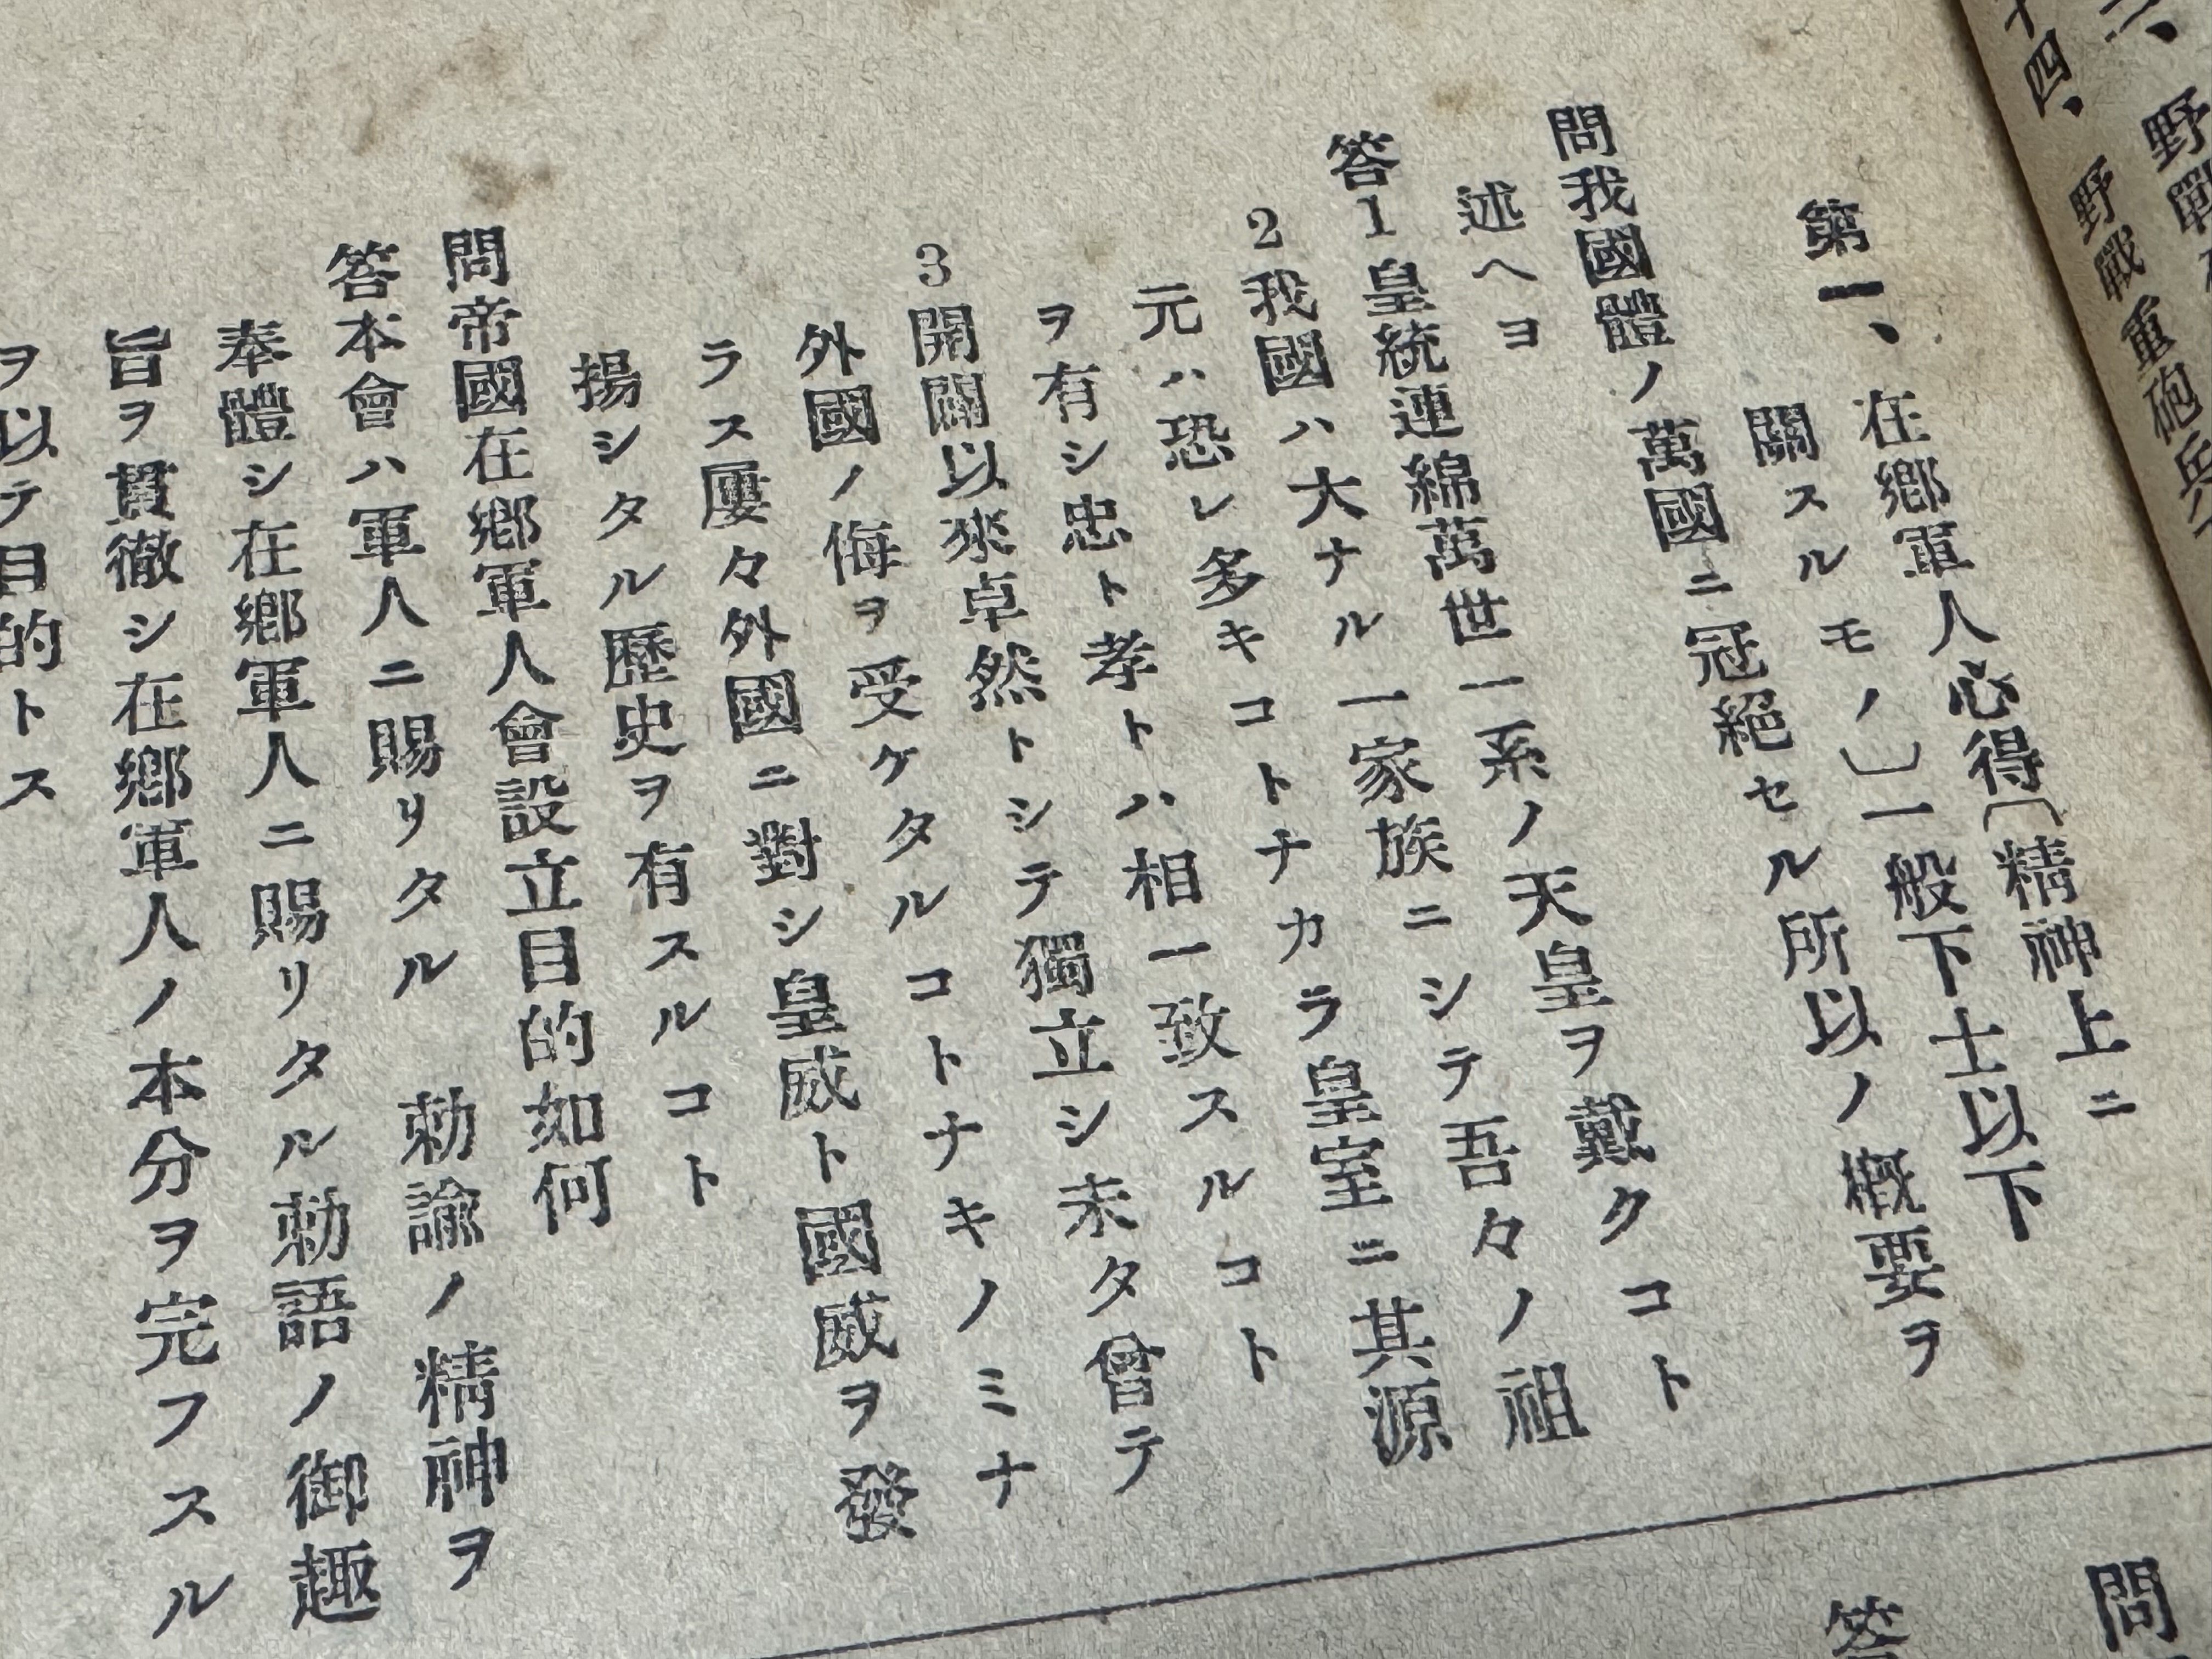 野戰
十四、野戰重砲兵
第一、在鄕軍人心得〔精神上ニ
關スルモノ〕一般下士以下
問我國體ノ萬國ニ冠絕セル所以ノ概要ヲ
述ヘヨ
答1皇統連綿萬世一系ノ天皇ヲ戴クコト
2我國ハ大ナル一家族ニシテ吾々ノ祖
元ハ恐レ多キコトナカラ皇室ニ其源
ヲ有シ忠ト孝トハ相一致スルコト
3開闢以來卓然トシテ獨立シ未タ曾テ
外國ノ侮ヲ受ケタルコトナキノミナ
ラス屢々外國ニ對シ皇威ト國威ヲ發
揚シタル歷史ヲ有スルコト
問帝國在鄕軍人會設立目的如何
答本會ハ軍人ニ賜リタル 勅諭ノ精神ヲ
奉體シ在鄕軍人ニ賜リタル勅語ノ御趣
旨ヲ貫徹シ在鄕軍人ノ本分ヲ完フスル
ヲ以テ目的トス
問
答